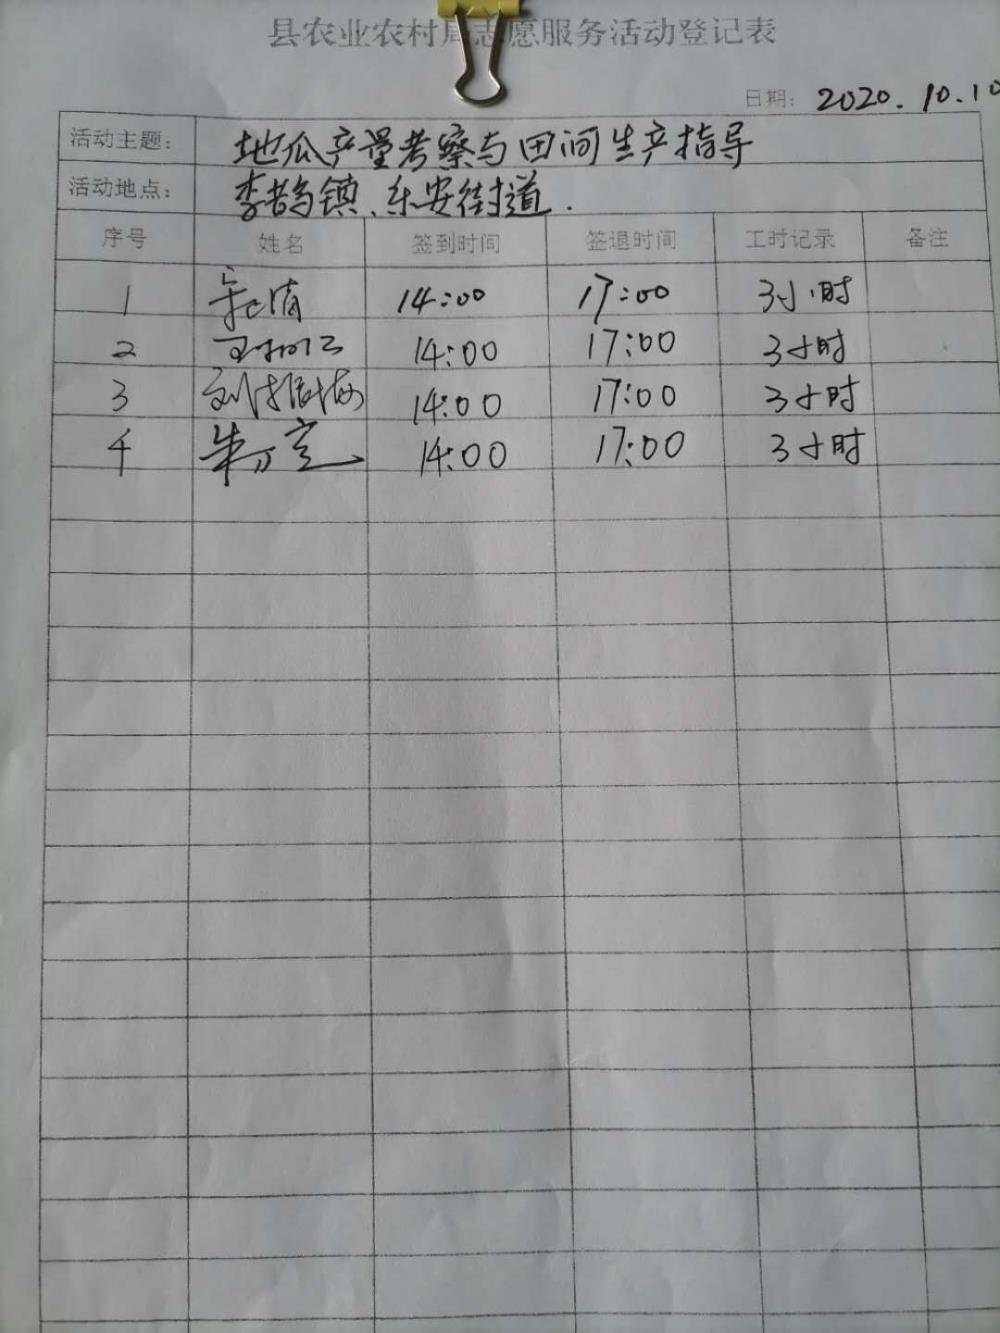 县农业农村局志愿服务活动登记表
日期: 2020.10.10
活动主题: 地瓜产量考察与田间生产指导
活动地点: 李鹊镇、乐安街道.
序号 姓名 签到时间 签退时间 工时记录 备注
1 14:00 17:00 3小时
2 14:00 17:00 3小时
3 刘振海 14:00 17:00 3小时
4 朱万亮 14:00 17:00 3小时